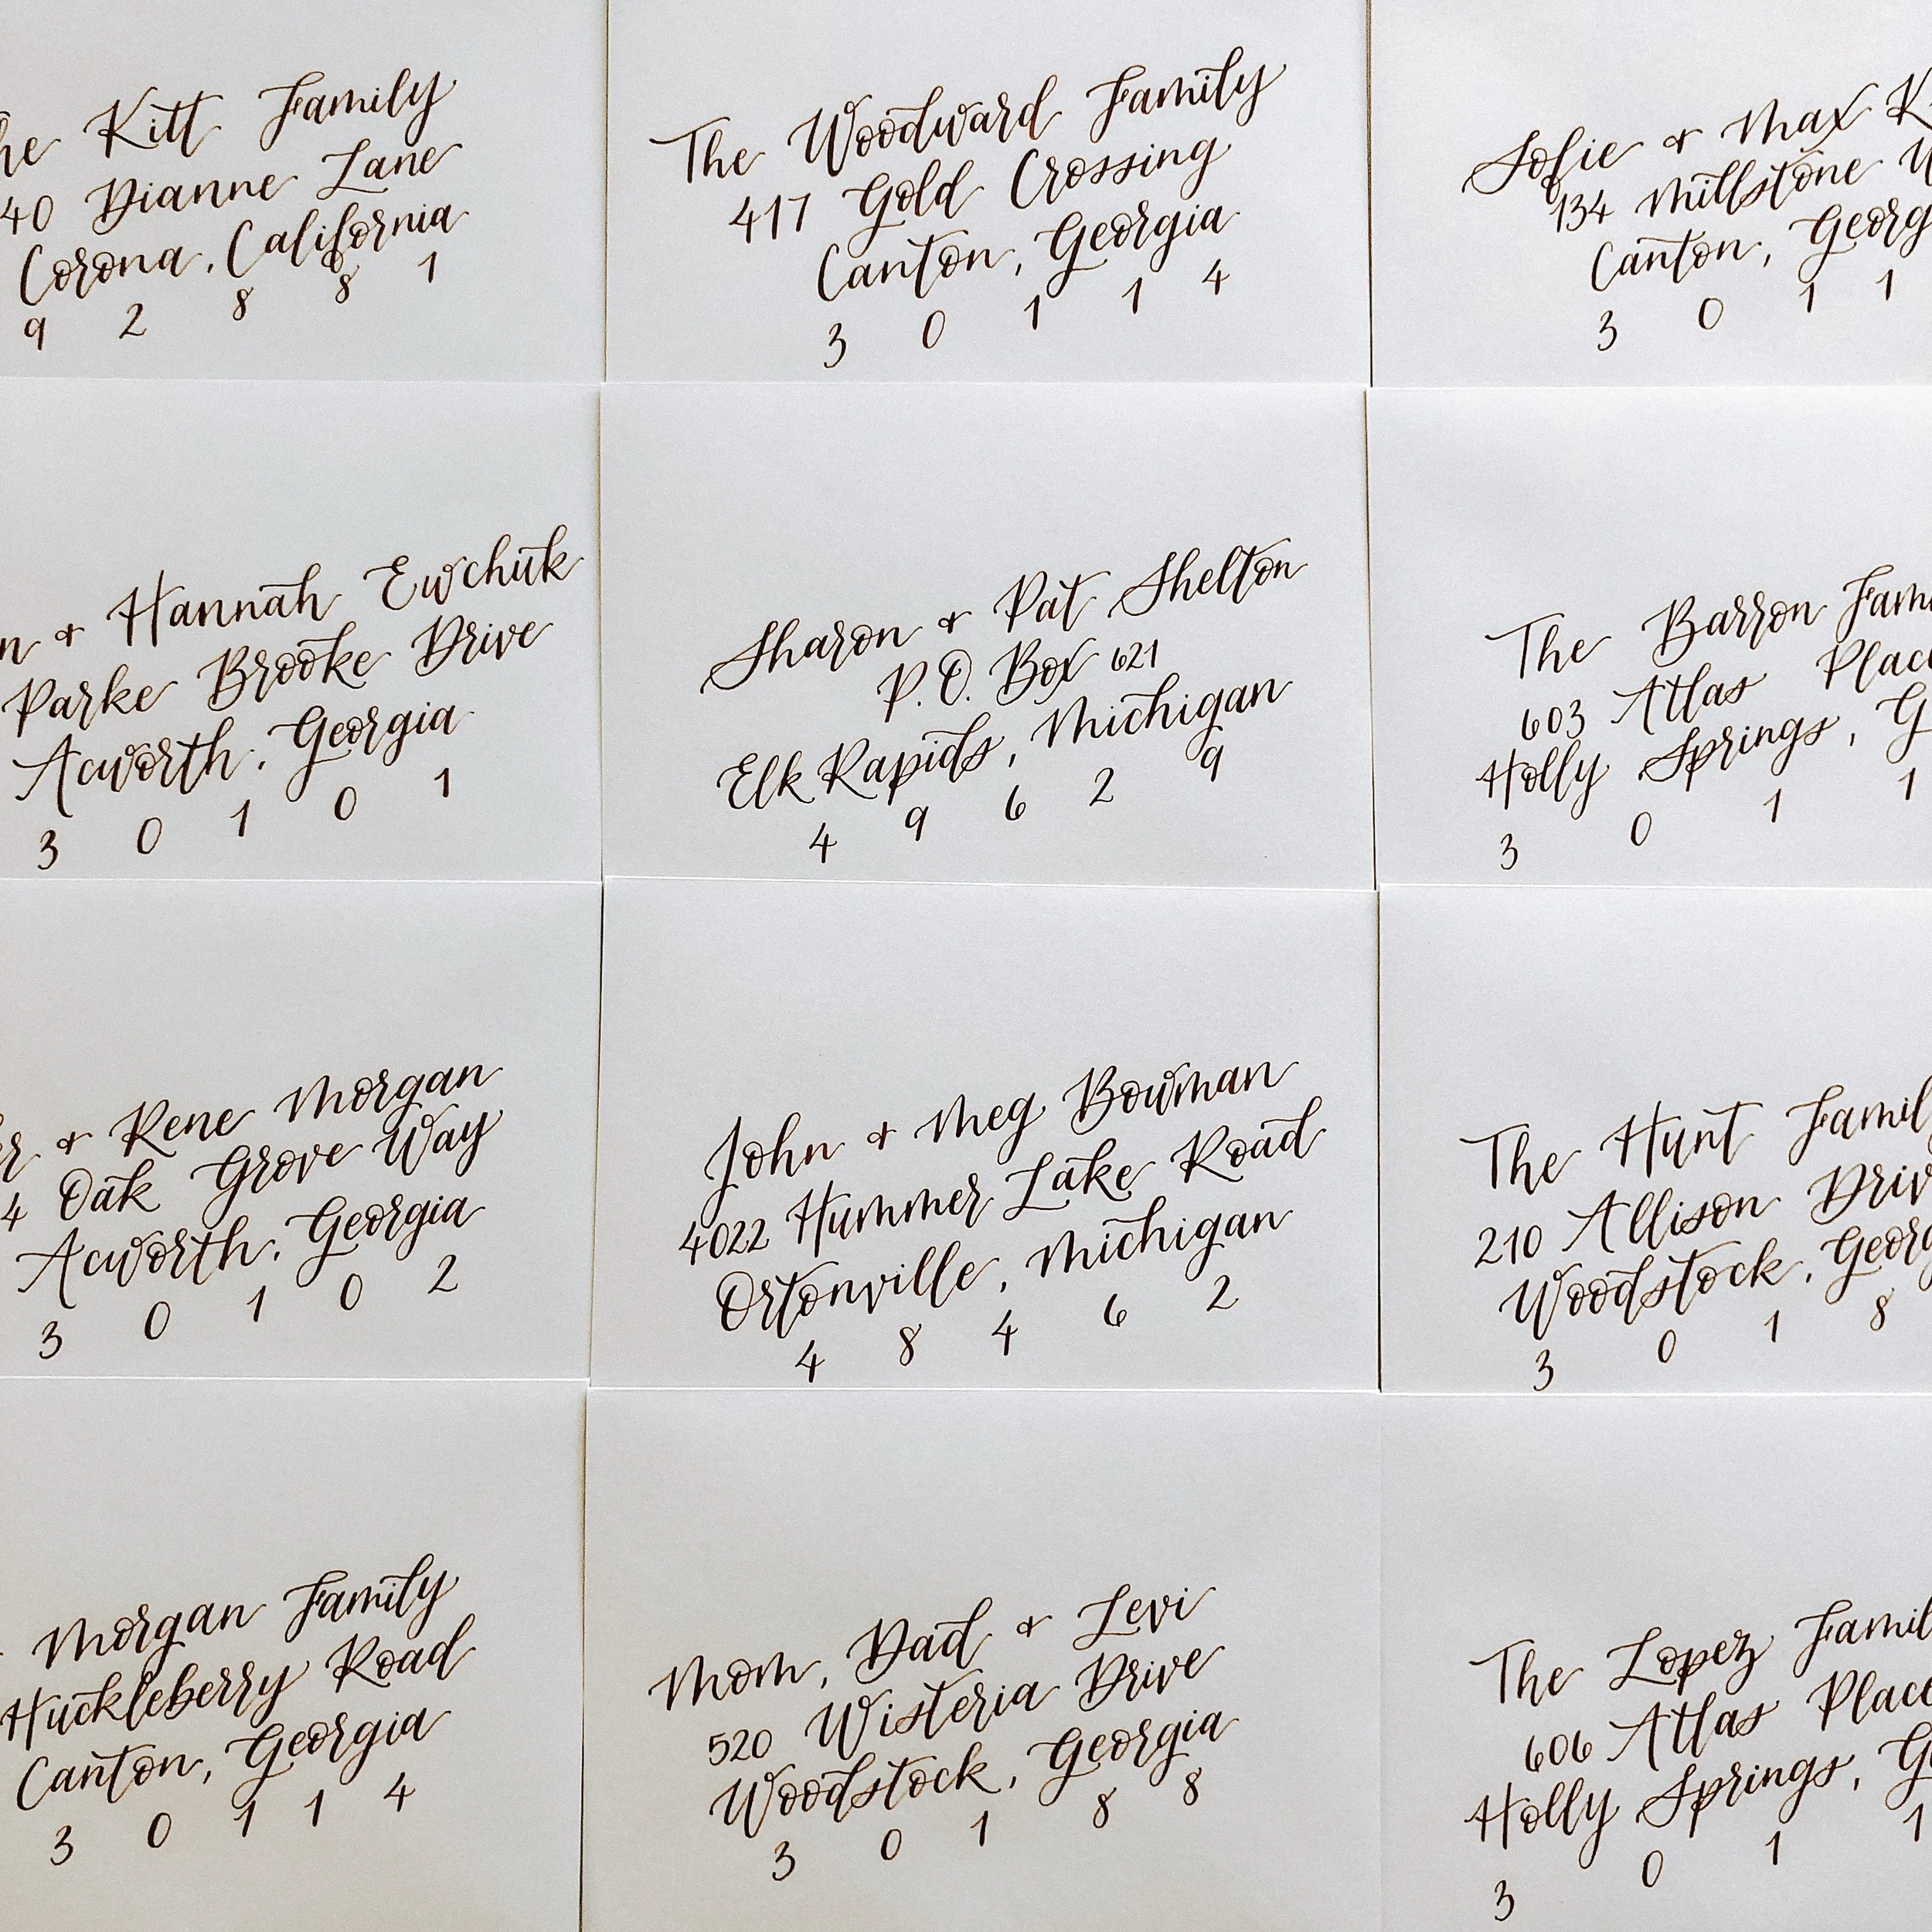 he Kitt Family
40 Dianne Lane
Corona, California
9 2 8 8 1
The Woodward Family
417 Gold Crossing
Canton, Georgia
3 0 1 1 4
Sofie & Max K
134 Millstone W
Canton, Georg
3 0 1 1
n & Hannah Ewchuk
Parke Brooke Drive
Acworth, Georgia
3 0 1 0 1
Sharon & Pat Shelton
P.O. Box 621
Elk Rapids, Michigan
4 9 6 2 9
The Barron Fam
603 Atlas Place
Holly Springs, G
3 0 1 1
er & Rene Morgan
4 Oak Grove Way
Acworth, Georgia
3 0 1 0 2
John & Meg Bowman
4022 Hummer Lake Road
Ortonville, Michigan
4 8 4 6 2
The Hunt Famil
210 Allison Driv
Woodstock, Georg
3 0 1 8
Morgan Family
Huckleberry Road
Canton, Georgia
3 0 1 1 4
Mom, Dad & Levi
520 Wisteria Drive
Woodstock, Georgia
3 0 1 8 8
The Lopez Famil
606 Atlas Place
Holly Springs, G
3 0 1 1